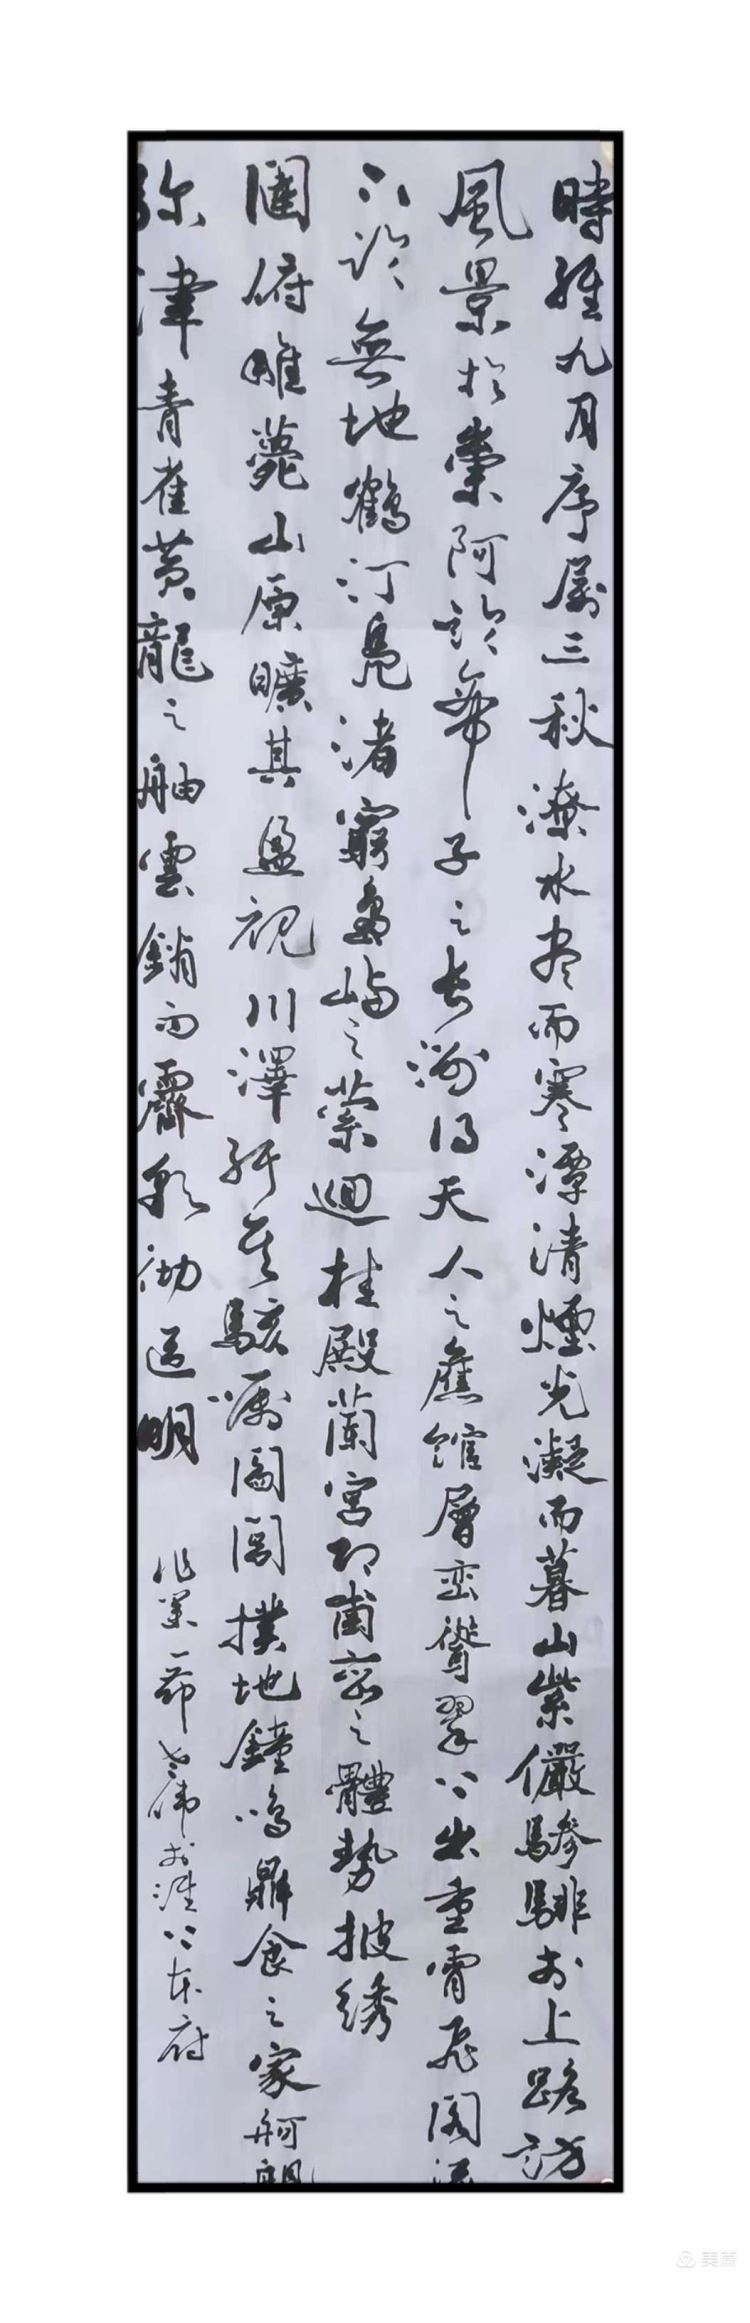 時維九月序屬三秋潦水尽而寒潭清煙光凝而暮山紫儼驂騑於上路訪
風景於崇阿臨帝子之長洲得天人之舊館層巒聳翠上出重霄飛閣流
下臨無地鶴汀鳧渚窮島嶼之縈迴桂殿蘭宮即岡巒之體勢披绣
闥俯雕甍山原曠其盈視川澤紆其駭矚閭閻撲地鐘鳴鼎食之家舸艦
弥津青雀黄龍之舳雲銷雨霽彩徹區明
作業一節
美篇